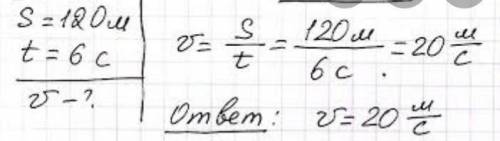 S = 120 м
t = 6 с
v - ?
v = S/t = 120 м/6 с = 20 м/с
Ответ: v = 20 м/с